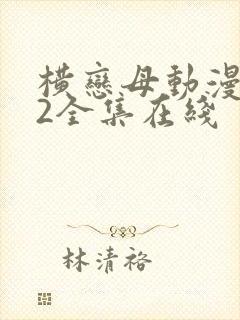 横戀母動漫
2全集在綫
林清裕